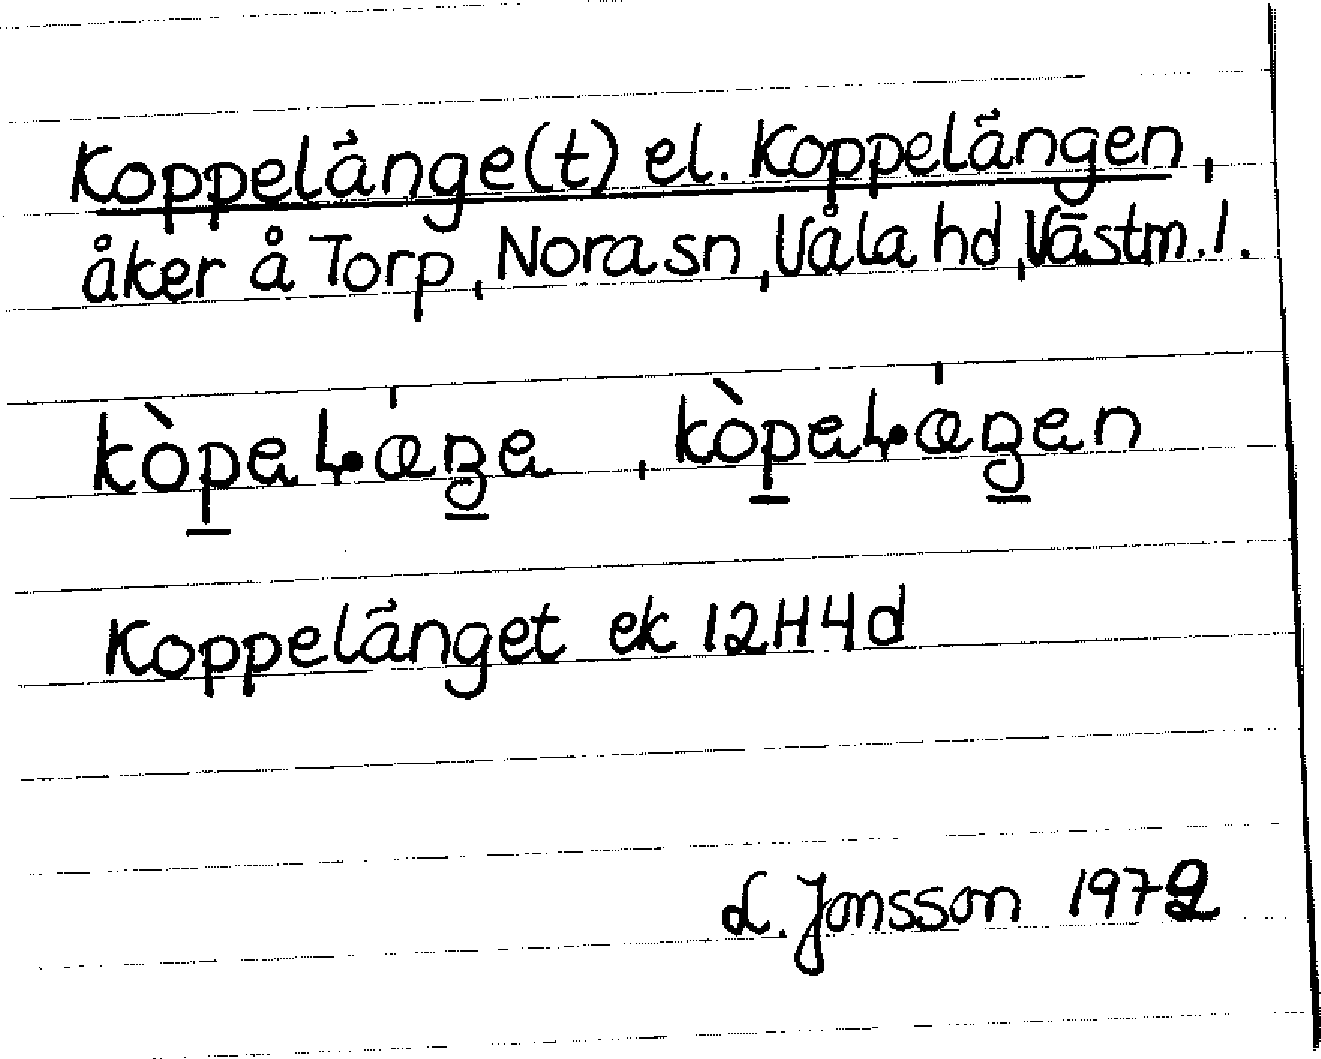 Koppelänge(t) el. Koppelängen,
åker å Torp, Nora sn, Våla hd, Västm. l.
kòpeƚæŋe, kòpeƚæŋen
Koppelänget ek 12H4d
L. Jonsson 1972